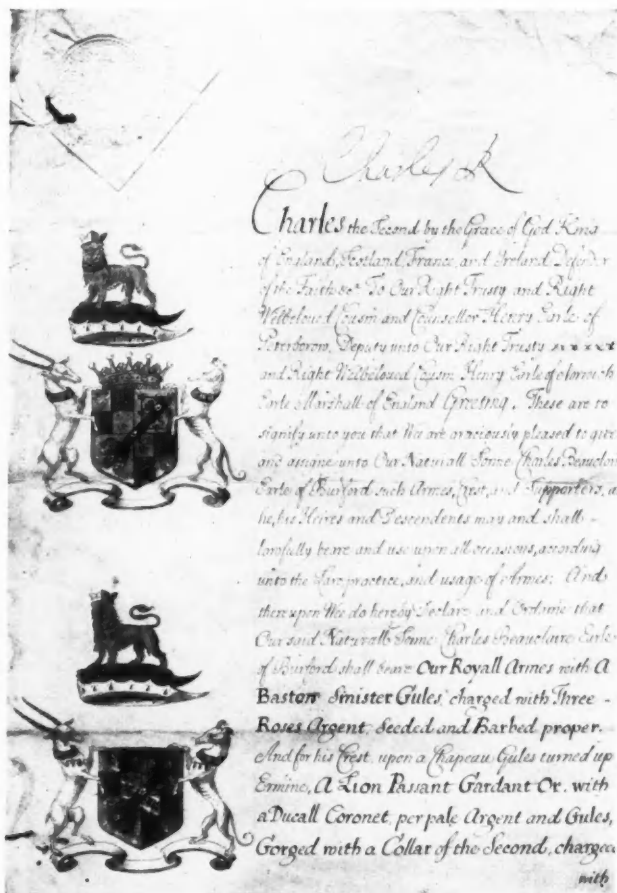 Charles R
Charles the Second by the Grace of God King
of England, Scotland, France, and Ireland Defender
of the Faith &c. To Our Right Trusty and Right
Welbeloved Cousin and Counsellor Henry Earle of
Peterborow, Deputy unto Our Right Trusty
and Right Welbeloved Cousin Henry Earle of Norwich
Earle Marshall of England Greeting. These are to
signify unto you that We are graciously pleased to give
and assigne unto Our Naturall Sonne Charles
Earle of Burford such Armes, Crest, and Supporters, as
he, his Heires and Descendents may and shall -
lawfully beare and use upon all occasions, according
unto the Law practice, and usage of Armes; And
thereupon We do hereby Declare and Ordaine that
Our said Naturall Sonne Charles Beauclaire Earle
of Burford shall beare Our Royall Armes with A
Baston Sinister Gules, charged with Three -
Roses Argent, Seeded and Barbed proper.
And for his Crest, upon a Chapeau Gules turned up
Ermine, A Lion Passant Gardant Or, with
a Ducall Coronet, per pale Argent and Gules,
Gorged with a Collar of the Second, charged
with